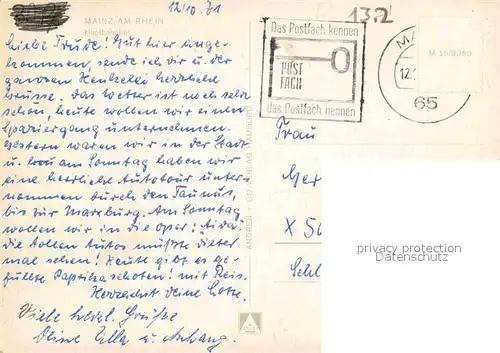 12/10.71
MAINZ AM RHEIN
Hauptbahnhof
Liebe Trude! Gut hier ange-
kommen, sende ich dir u. der
ganzen herzliche
Grüsse. Das Wetter ist noch sehr
schön, heute wollen wir einen
Spaziergang unternehmen.
Gestern waren wir in der Stadt
u. am Sonntag haben wir
eine herrliche Autotour unter-
nommen durch den Taunus,
bis zur Marxburg. Am Sonntag
wollen wir in die Oper: Aida.
die tollen Autos müsste dieter
mal sehen! Heute gibt es ge-
füllte Paprikaschoten! mit Reis.
Herzlichst deine Lotte.
Viele herzl. Grüße
Deine Ella u. Anhang.
ANDRES + CO VERLAG HAMBURG
132
Das Postfach kennen
POST
FACH
das Postfach nennen
MA
12.
65
M 15/8060
Frau
Ger
X 50
Schl
privacy protection
Datenschutz